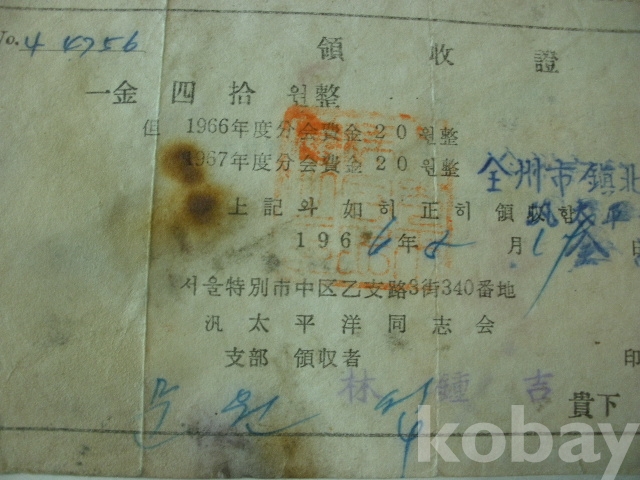 No. 4 4756
領收證
一金 四 拾 원整
但 1966年度分会費金20원整
1967年度分会費金20원整
全州市鎭北
上記와 如히 正히 領収함
1966年 8月
서울特別市中区乙支路3街340番地
汎太平洋同志会
支部 領収者 印
林鍾吉
貴下
kobay